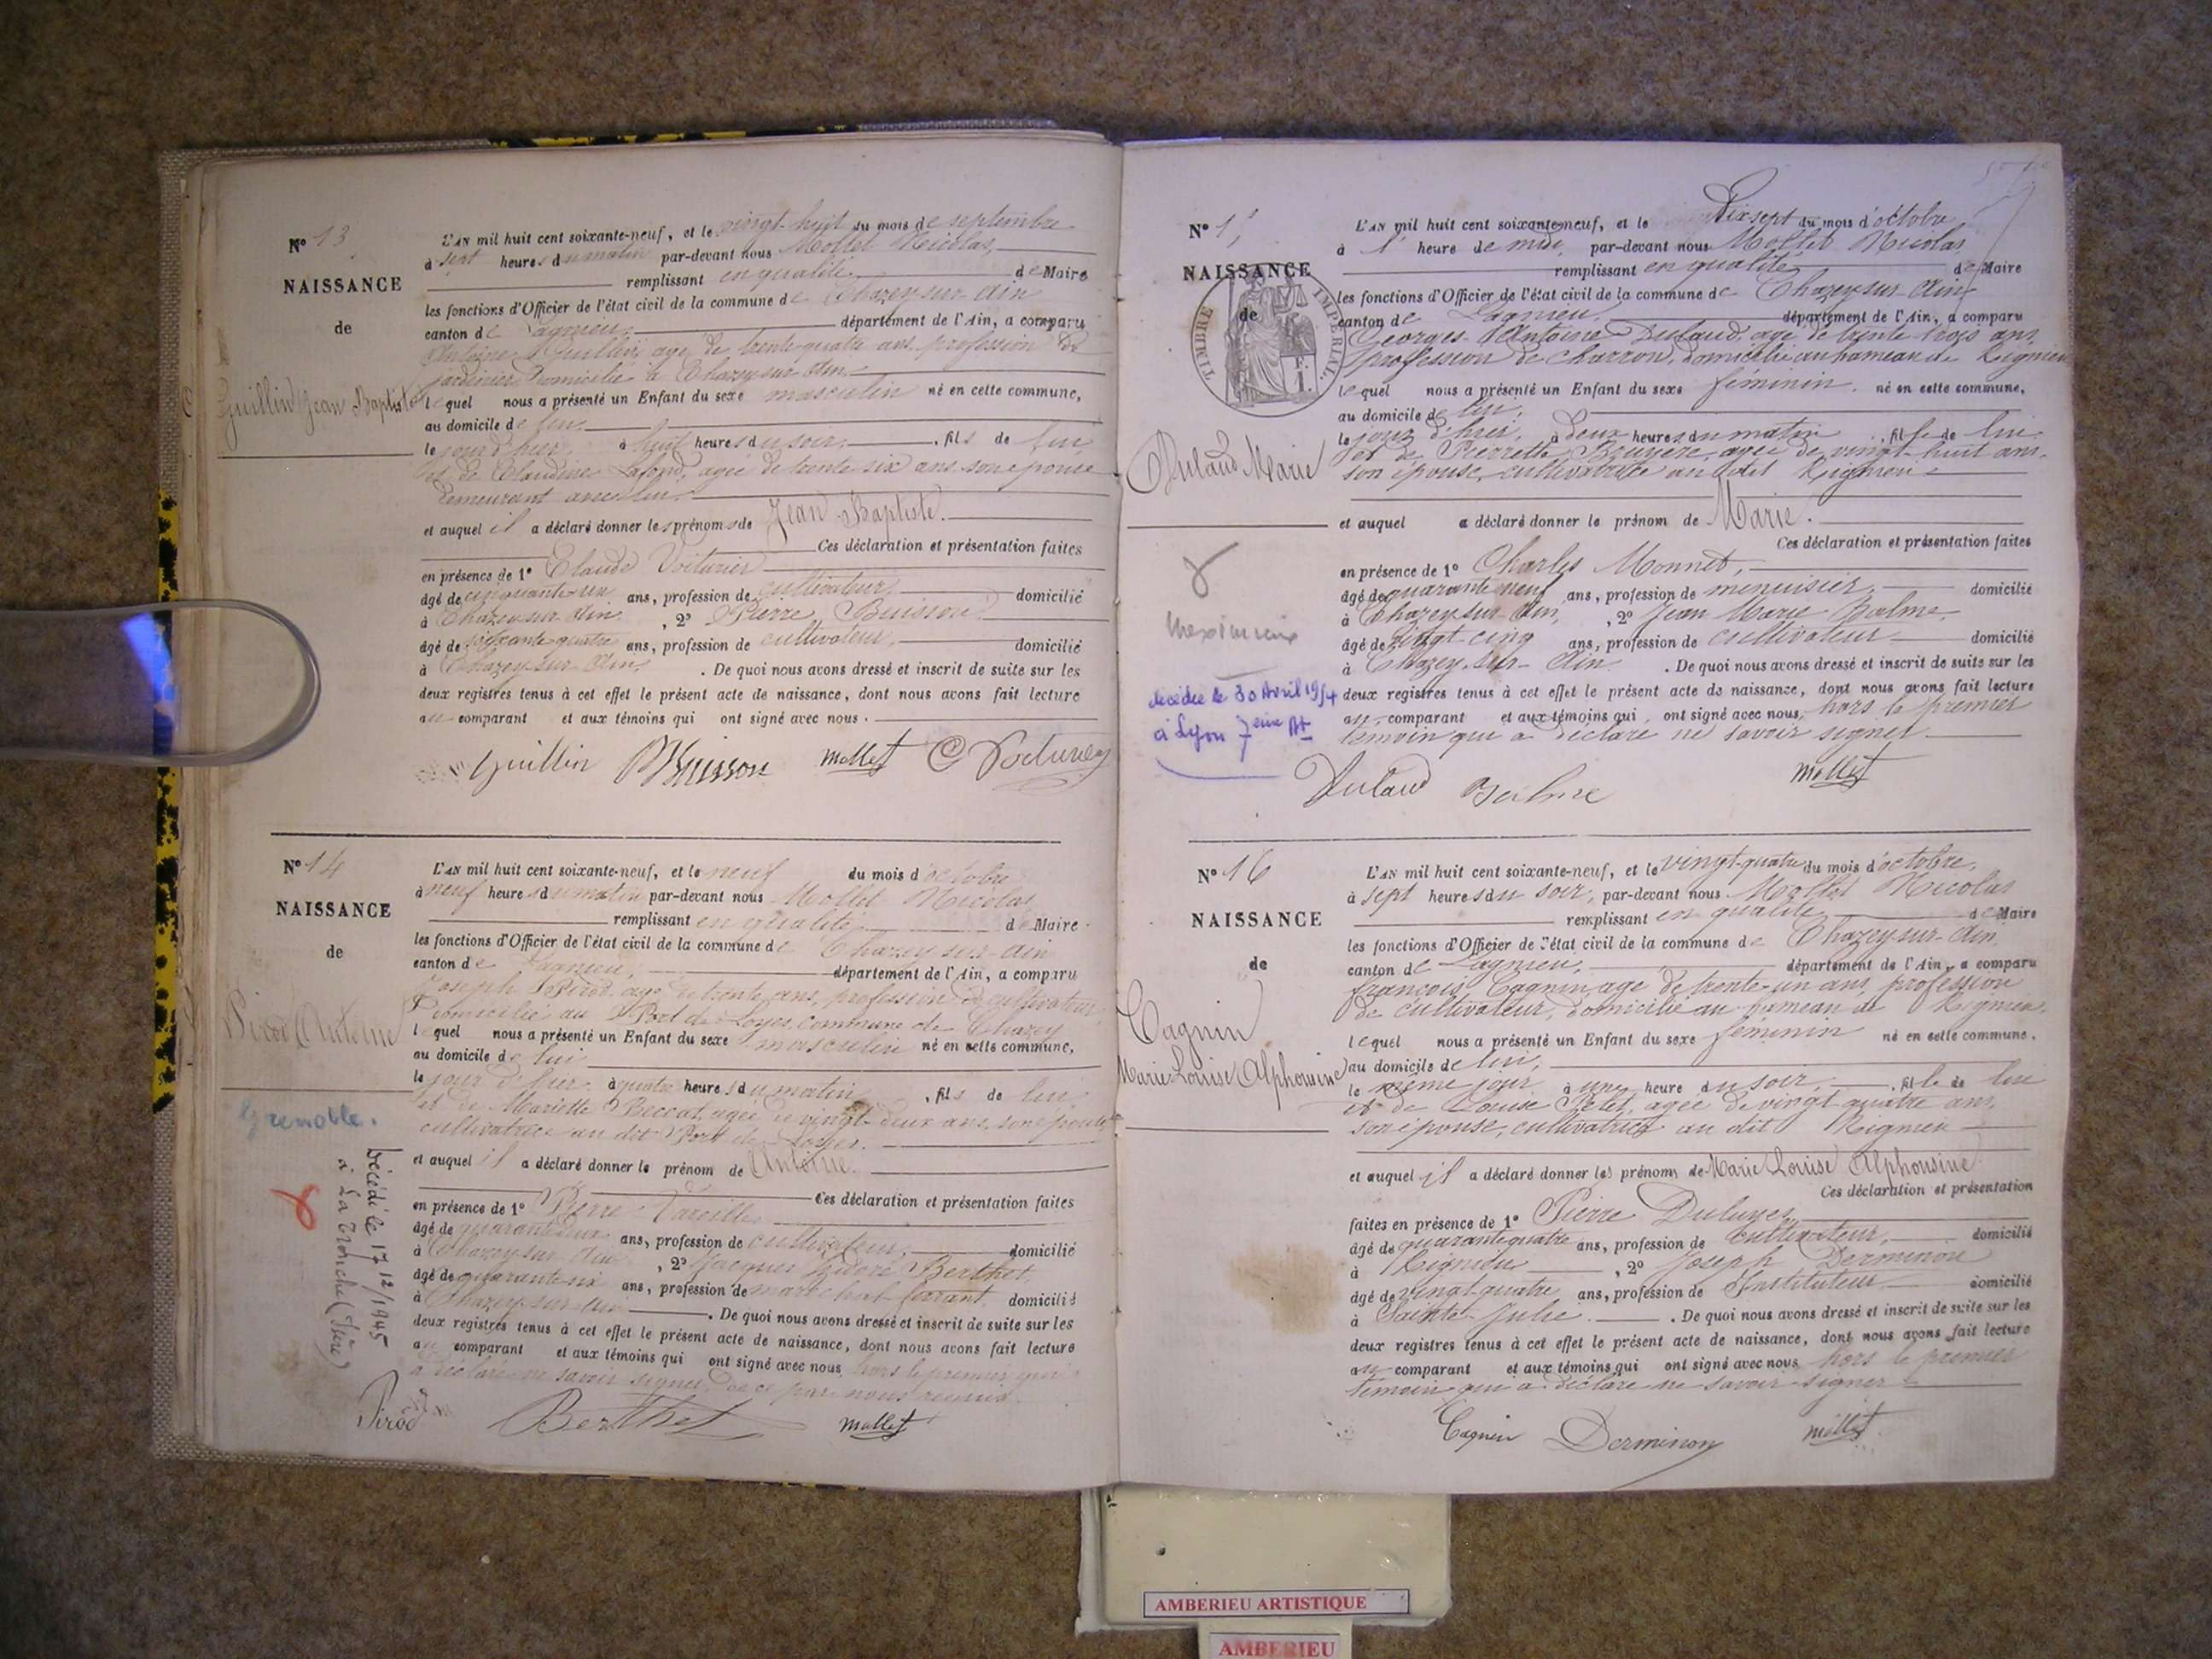 N° 13
NAISSANCE
de
Guillin Jean Baptiste
L'AN mil huit cent soixante-neuf, et le vingt-huit du mois de septembre
à sept heures du matin par-devant nous Mollet Nicolas,
remplissant en qualité de Maire
les fonctions d'Officier de l'état civil de la commune de Chazey-sur-Ain
canton de Lagnieu, département de l'Ain, a comparu
Antoine Guillin agé de trente-quatre ans, profession de
jardinier domicilié à Chazey-sur-Ain
lequel nous a présenté un Enfant du sexe masculin né en cette commune,
au domicile de lui,
le jour d'hier à huit heures du soir, fils de lui
et de Claudine Lafond, agée de trente six ans son épouse
demeurant avec lui
et auquel il a déclaré donner les prénoms de Jean Baptiste.
Ces déclaration et présentation faites
en présence de 1° Claude Voiturier
âgé de cinquante-un ans, profession de cultivateur, domicilié
à Chazey-sur-Ain, 2° Pierre Buisson
âgé de soixante-quatre ans, profession de cultivateur, domicilié
à Chazey-sur-Ain. De quoi nous avons dressé et inscrit de suite sur les
deux registres tenus à cet effet le présent acte de naissance, dont nous avons fait lecture
au comparant et aux témoins qui ont signé avec nous.
Guillin Buisson Mollet
N° 14
NAISSANCE
de
Pirod Antoine
Grenoble.
Décédé le 17/12/1945
à La Tronche (Isère)
L'AN mil huit cent soixante-neuf, et le neuf du mois d'octobre
à neuf heures du matin par-devant nous Mollet Nicolas
remplissant en qualité de Maire
les fonctions d'Officier de l'état civil de la commune de Chazey-sur-Ain
canton de Lagnieu, département de l'Ain, a comparu
Joseph Pirod agé de trente ans, profession de cultivateur
domicilié au Port de Loyes, commune de Chazey
lequel nous a présenté un Enfant du sexe masculin né en cette commune,
au domicile de lui
le jour d'hier à quatre heures du matin, fils de lui
et de Mariette Beccat, agée de vingt-deux ans, son épouse
cultivatrice au dit Port de Loyes.
et auquel il a déclaré donner le prénom de Antoine.
Ces déclaration et présentation faites
en présence de 1° Pierre Vareille
âgé de quarante-deux ans, profession de cultivateur, domicilié
à Chazey-sur-Ain, 2° Jacques Isidore Berthet
âgé de quarante-six ans, profession de maréchal ferrant domicilié
à Chazey-sur-Ain. De quoi nous avons dressé et inscrit de suite sur les
deux registres tenus à cet effet le présent acte de naissance, dont nous avons fait lecture
au comparant et aux témoins qui ont signé avec nous hors le premier qui
a déclaré ne savoir signer de ce par nous requis.
Pirod Berthet Mollet
N° 1
NAISSANCE
de
TIMBRE IMPÉRIAL
Dulaud Marie
Meximieux
décédée le 30 Avril 1954
à Lyon 7eme Art
L'AN mil huit cent soixante-neuf, et le Dix sept du mois d'octobre
à l' heure de midi, par-devant nous Mollet Nicolas
remplissant en qualité de Maire
les fonctions d'Officier de l'état civil de la commune de Chazey-sur-Ain
canton de Lagnieu département de l'Ain, a comparu
Georges Antoine Dulaud, agé de trente trois ans,
profession de charron, domicilié au hameau de Rignieu
lequel nous a présenté un Enfant du sexe féminin né en cette commune,
au domicile de lui,
le jour d'hier, à deux heures du matin, fille de lui
et de Pierrette Bruyère, agée de vingt-huit ans,
son épouse, cultivatrice au dit Rignieu
et auquel a déclaré donner le prénom de Marie.
Ces déclaration et présentation faites
en présence de 1° Charles Monnet,
âgé de quarante neuf ans, profession de menuisier, domicilié
à Chazey-sur-Ain, 2° Jean Marie Balme,
âgé de vingt-cinq ans, profession de cultivateur domicilié
à Chazey-sur-Ain. De quoi nous avons dressé et inscrit de suite sur les
deux registres tenus à cet effet le présent acte de naissance, dont nous avons fait lecture
au comparant et aux témoins qui ont signé avec nous, hors le premier
témoin qui a déclaré ne savoir signer.
Dulaud Balme Mollet
N° 16
NAISSANCE
de
Cagnin
Marie Louise Alphonsine
L'AN mil huit cent soixante-neuf, et le vingt-quatre du mois d'octobre,
à sept heures du soir, par-devant nous Mollet Nicolas
remplissant en qualité de Maire
les fonctions d'Officier de l'état civil de la commune de Chazey-sur-Ain
canton de Lagnieu, département de l'Ain, a comparu
François Cagnin agé de trente-un ans, profession
de cultivateur, domicilié au hameau de Rignieu,
lequel nous a présenté un Enfant du sexe féminin né en cette commune,
au domicile de lui,
le même jour à une heure du soir, fille de lui
et de Louise Pelet, agée de vingt quatre ans,
son épouse, cultivatrice au dit Rignieu
et auquel il a déclaré donner les prénoms de Marie Louise Alphonsine
Ces déclaration et présentation
faites en présence de 1° Pierre Duluyer
âgé de quarante quatre ans, profession de Cultivateur, domicilié
à Rignieu, 2° Joseph Derminon
âgé de vingt quatre ans, profession de Instituteur domicilié
à Sainte-Julie. De quoi nous avons dressé et inscrit de suite sur les
deux registres tenus à cet effet le présent acte de naissance, dont nous avons fait lecture
au comparant et aux témoins qui ont signé avec nous hors le premier
témoin qui a déclaré ne savoir signer
Cagnin Derminon Mollet
AMBERIEU ARTISTIQUE
AMBERIEU